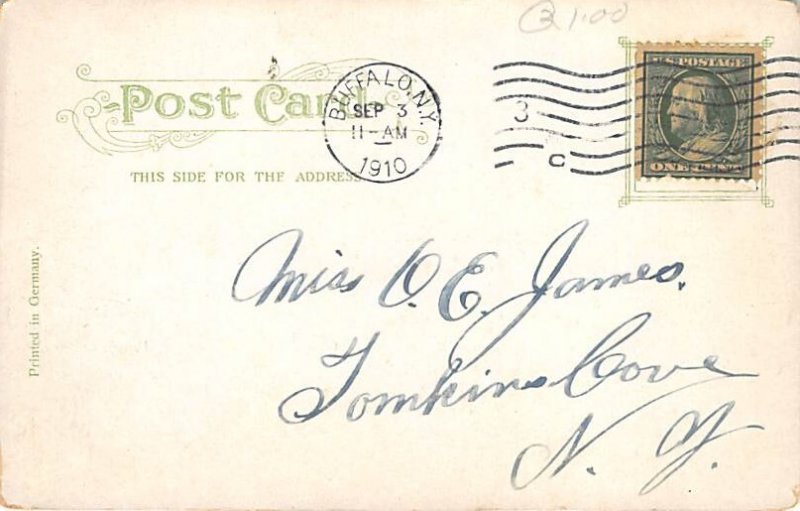 1.00
Post Card
BUFFALO, N.Y.
SEP 3
11-AM
1910
3
C
U.S. POSTAGE
ONE CENT
THIS SIDE FOR THE ADDRESS
Printed in Germany.
Miss O. E. James.
Tomkins Cove
N. Y.